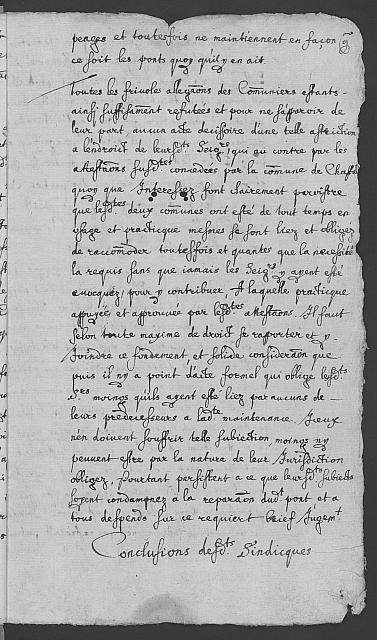 peages et toutesfois ne maintiennent en façon q̃
ce soit les ponts quoy quil y en ait.
Toutes les friuoles allegaõns des Comuniers estants
ainsj suffisãment refutées et pour ne sapparoir de
leur part, aucun acte decissoire dune telle astriction
a lendroict de leursdts Seigrs qui au contre par les
attestaõns susdtes concedées par la comune de
quoy que Interessez font clairement paroistre
que lesdtes deux comunes ont esté de tout temps en
vsage et practicque mesnes se sont liez et obligez
de raccõmoder toutesfois et quantes que la necessité
la requis sans que iamais les Seigrs y ayent esté
euocquez pour y contribuer. A laquelle practicque
appuyée et approuuée par lesdtes attestaõns. Il faut
selon toute maxime de droict se rapporter et y
Ioindre ce fondement, et solide consideraõn que
puis il ny a point dacte formel qui oblige lesdts
Srs moinos quils ayent esté liez par aucuns de
leurs predecesseurs a ladte maintenance. Iceux
nen doiuent souffrir telle subiection moinos ny
peuuent estre par la nature de leur Iurisdiction
obligez. Pourtant persistent a ce que leursdts subiects
soyent condampnez a la reparaõn dudt pont et a
tous despends sur ce requiert brief Iugemt
Conclusions desdts Sindicques